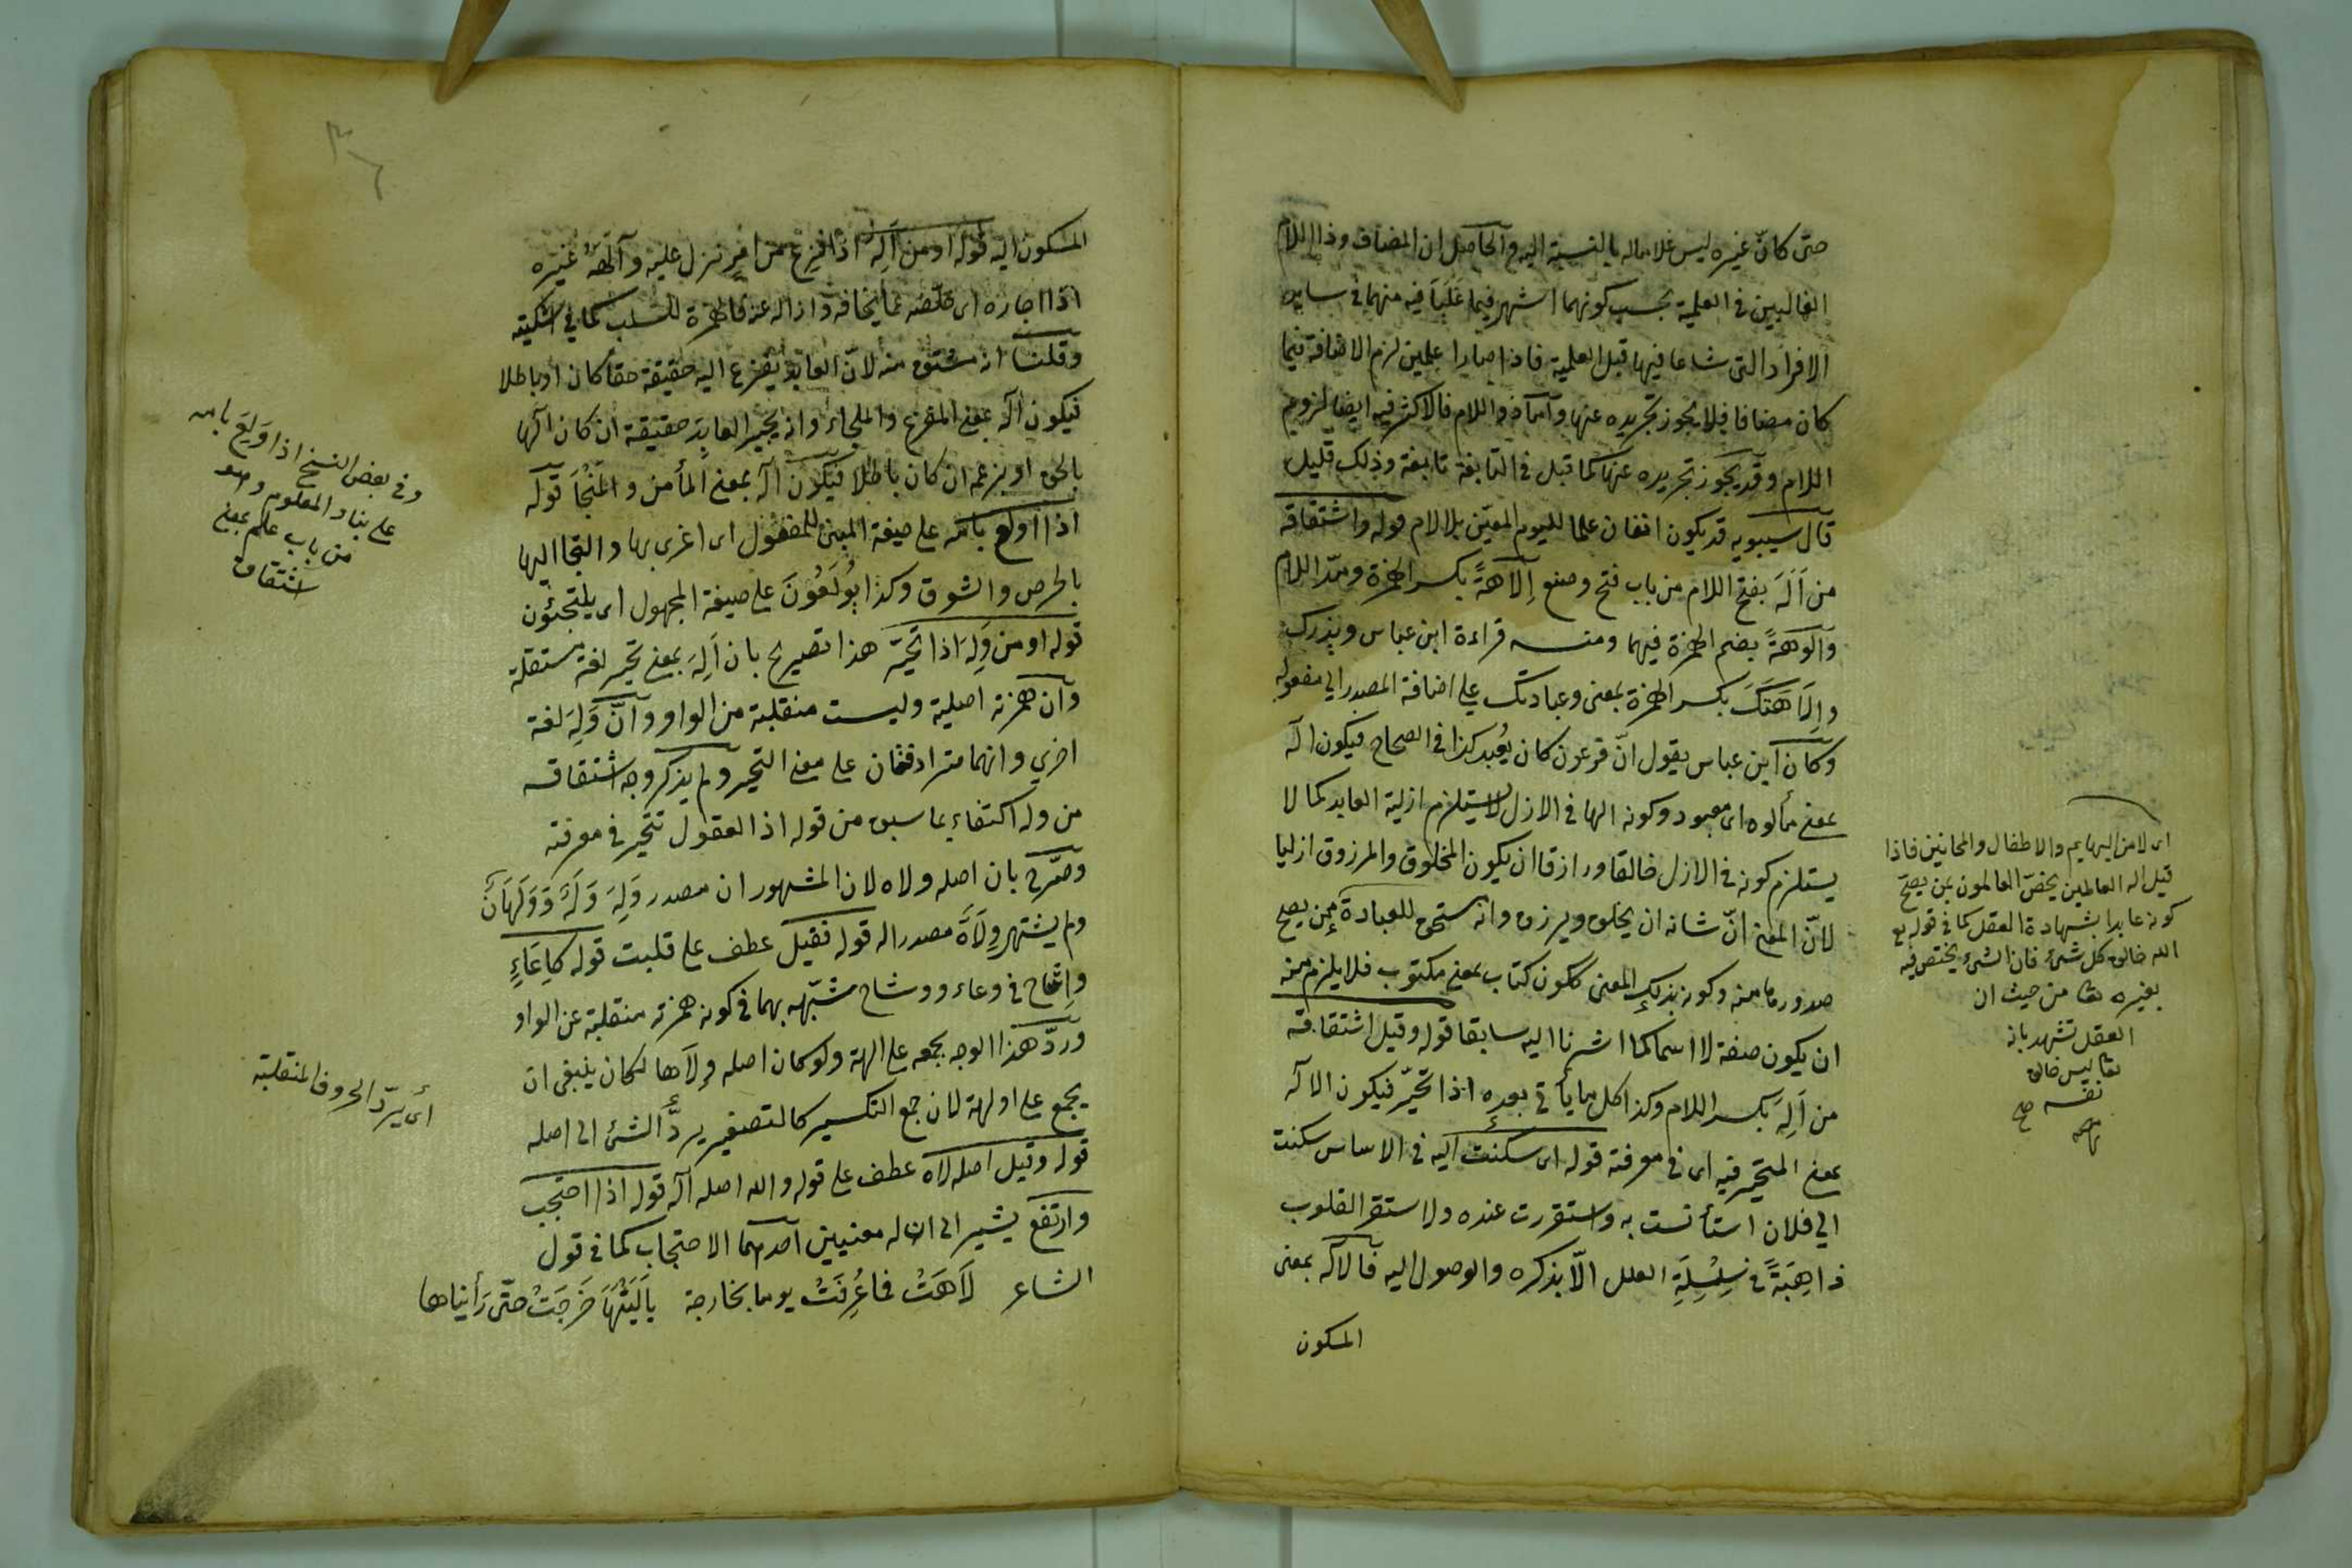 حتى كانّ غيره ليس غلاما له بالنسبة اليه والحاصل ان المضاف وذا اللام
الغالبين في العلمية بحسب كونهما اشهر فيما غَلَبَا فيه منهما في ساير
الافراد التى شاعا فيها قبل العلمية فاذا صارا علمين لزم الاضافة فيما
كان مضافا فلا يجوز تجريده عنها وأما ذو اللام فالاكثر فيه ايضا لزوم
اللام وقد يجوز تجريده عنها كما قيل في النابغة نابغة وذلك قليل
قال سيبويه قد يكون اثنان علما لليوم المعيّن بلا لام قوله واشتقاقه
من اَلَهَ بفتح اللام من باب فتح وصنع اِلَاهَةً بكسر الهمزة ومدّ اللام
وألوهةً بضم الهمزة فيهما ومنه قراءة ابن عباس ويذرك
وإِلَاهَتَكَ بكسر الهمزة بمعنى وعبادتك على اضافة المصدر الى مفعوله
وكان ابن عباس يقول انّ فرعون كان يُعْبَد كذا في الصحاح فيكون اله
بمعنى مألوه اى معبود وكونه الها في الازل لا يستلزم ازلية العابد كما لا
يستلزم كونه في الازل خالقا ورازقا ان يكون المخلوق والمرزوق ازليا
لانّ المعنى انّ شانه ان يخلق ويرزق وانه يستحق للعبادة ممن يصح
صدورها منه وكونه بذلك المعنى ككون كتاب بمعنى مكتوب فلا يلزم منه
ان يكون صفة لا اسما كما اشرنا اليه سابقا قوله وقيل اشتقاقه
من اَلِهَ بكسر اللام وكذا كل ما يأتى بعده اذا تحيّر فيكون الاله
بمعنى المتحير فيه اى في معرفته قوله اى سكنت اليه في الاساس سكنت
الى فلان استأنست به واستقرت عنده ولا تستقر القلوب
ذاهِبَةً في سِلْسِلَةِ العلل الّا بذكره والوصول اليه فالاله بمعنى
المسكون
اى لا من البهايم والاطفال والمجانين فاذا
قيل اله العالمين يخصّ العالمون بمن يصحّ
كونه عابدا بشهادة العقل كما في قوله تع
الله خالق كل شئ فان الشئ يختص فيه
بغيره تعا من حيث ان
العقل تشهد بانه
تعا ليس خالق
نفسه صح
منه
المسكون اليه قوله او من اَلِهَ اذا فزع من امر نزل عليه وآلَهَهُ غيره
اذا اجاره اى خلّصه عما يخافه وازاله عنه فالهمزة للسلب كما في اشكيته
وقلنا انه مشتق منه لانّ العابد يفزع اليه حقيقة حقا كان او باطلا
فيكون اله بمعنى المفزع والملجاء وانه يجير العابد حقيقة ان كان الها
بالحق او بزعمه ان كان باطلا فيكون اله بمعنى المأمن والمَنْجَأ قوله
اذا اولع بامّه على صيغة المبنى للمفعول اى اغرى بها والتجا اليها
بالحرص والشوق وكذا يُولَعُونَ على صيغة المجهول اى يلتجئون
قوله او من وَلِهَ اذا تحيّر هذا تصريح بان اَلِهَ بمعنى تحير لغة مستقلة
وان همزته اصلية وليست منقلبة من الواو وانّ وَلِهَ لغة
اخرى وانهما مترادفتان على معنى التحير ولم يذكر وجه اشتقاقه
من وله اكتفاء بما سبق من قوله اذ العقول تتحير في معرفته
وصرّح بان اصله ولاه لان المشهور ان مصدر وَلِهَ وَلَهٌ وَوَلَهَانٌ
ولم يشتهر وِلَاهٌ مصدرا له قوله فقيل عطف على قلبت قوله كإعاءٍ
وإشاح في وعاء ووشاح شبّهه بهما في كونه همزته منقلبة عن الواو
وردّ هذا الوجه بجمعه على الهة ولو كان اصله وِلَاها لكان ينبغى ان
يجمع على اولهة لان جمع التكسير كالتصغير يردّ الشئ الى اصله
قوله وقيل اصله لاه عطف على قوله والله اصله اله قوله اذا احتجب
وارتفع يشير الى ان له معنيين احدهما الاحتجاب كما في قول
الشاعر لَاهَتْ فما عُرِفَتْ يوما بخارجة يا لَيْتَهَا خَرَجَتْ حتّى رَأيناها
وفي بعض النسخ اذا وَلِعَ بامه
على بناء المعلوم وهو
من باب علم بمعنى
اشتقاق
اى يردّ الحروف المنقلبة